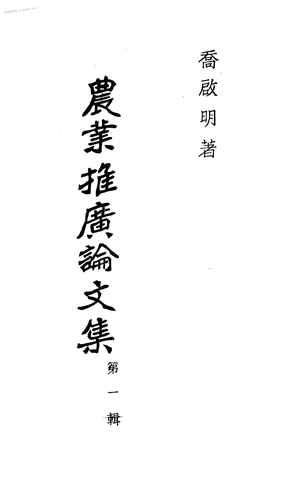 喬啟明著
農業推廣論文集
第一輯